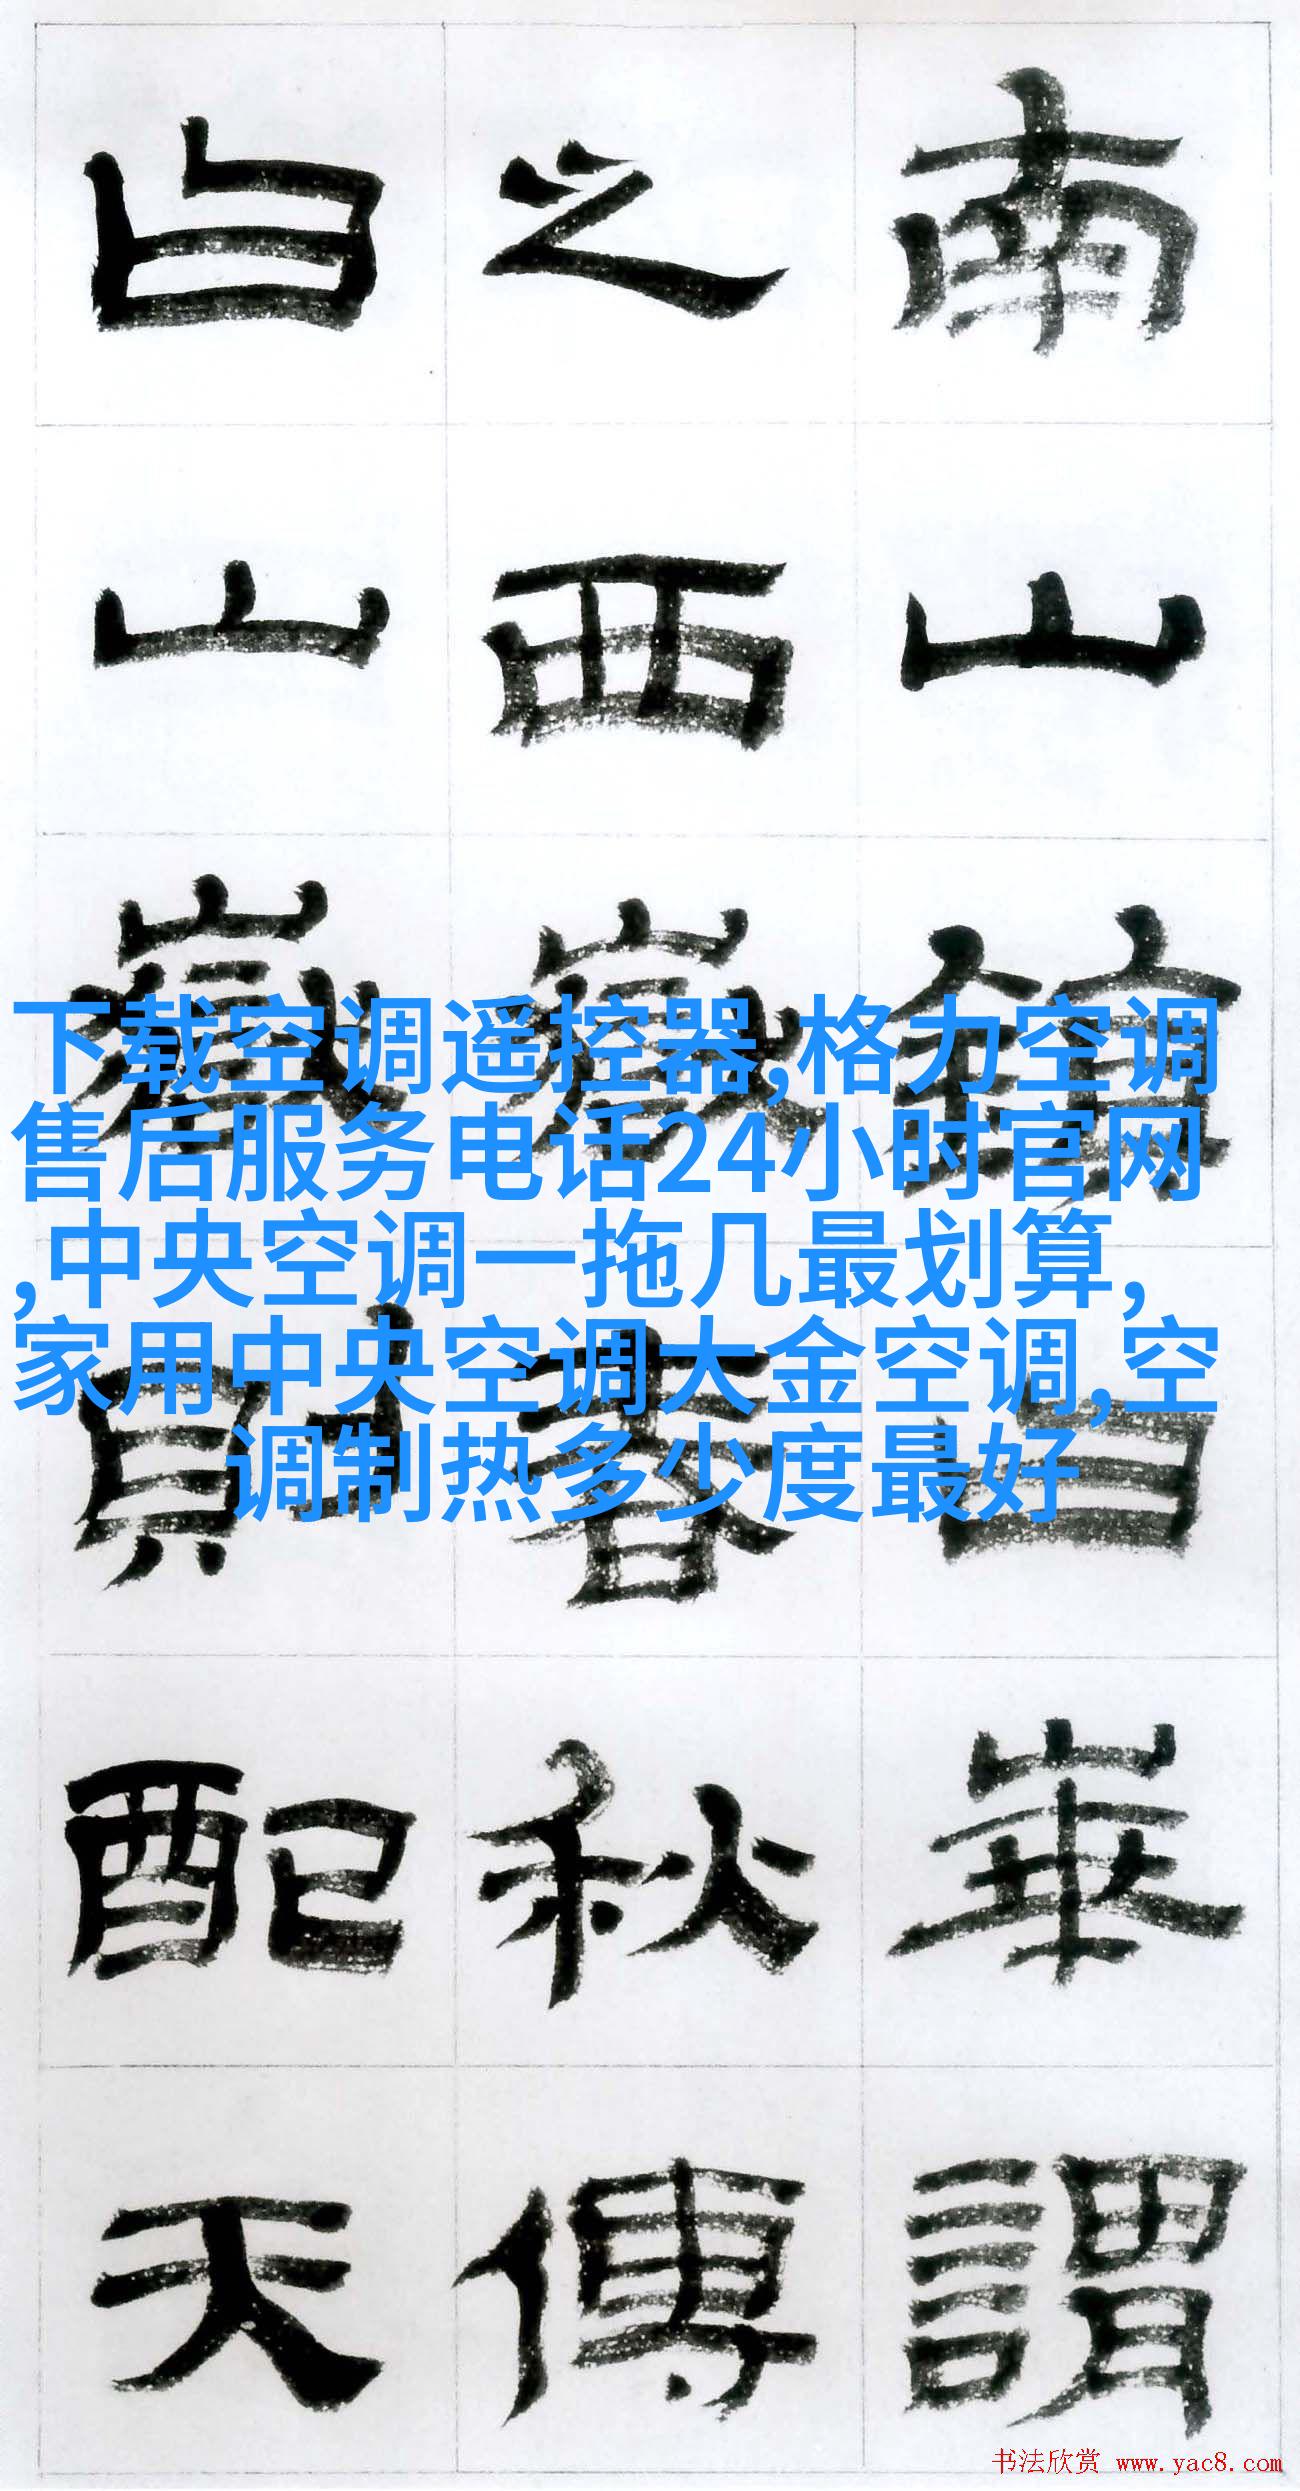 南山鎮曰華謂
之西嶽春秋傳
曰山嶽則配天
下载空调遥控器,格力空调
售后服务电话24小时官网
,中央空调一拖几最划算,
家用中央空调大金空调,空
调制热多少度最好
书法欣赏 www.yac8.com